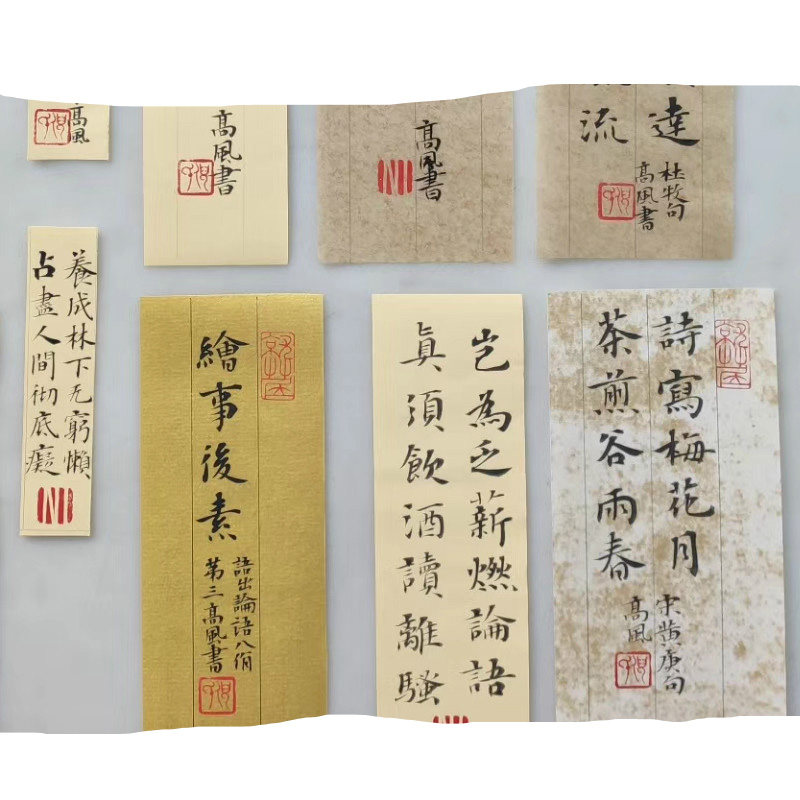 高風
高風書
高風書
達
流
杜牧句
高風書
養成林下无窮懶
占盡人間彻底癡
繪事後素
語出論語八佾
第三高風書
岂為乏薪燃論語
眞須飲酒讀離騷
詩寫梅花月
茶煎谷雨春
宋黄庚句
高風